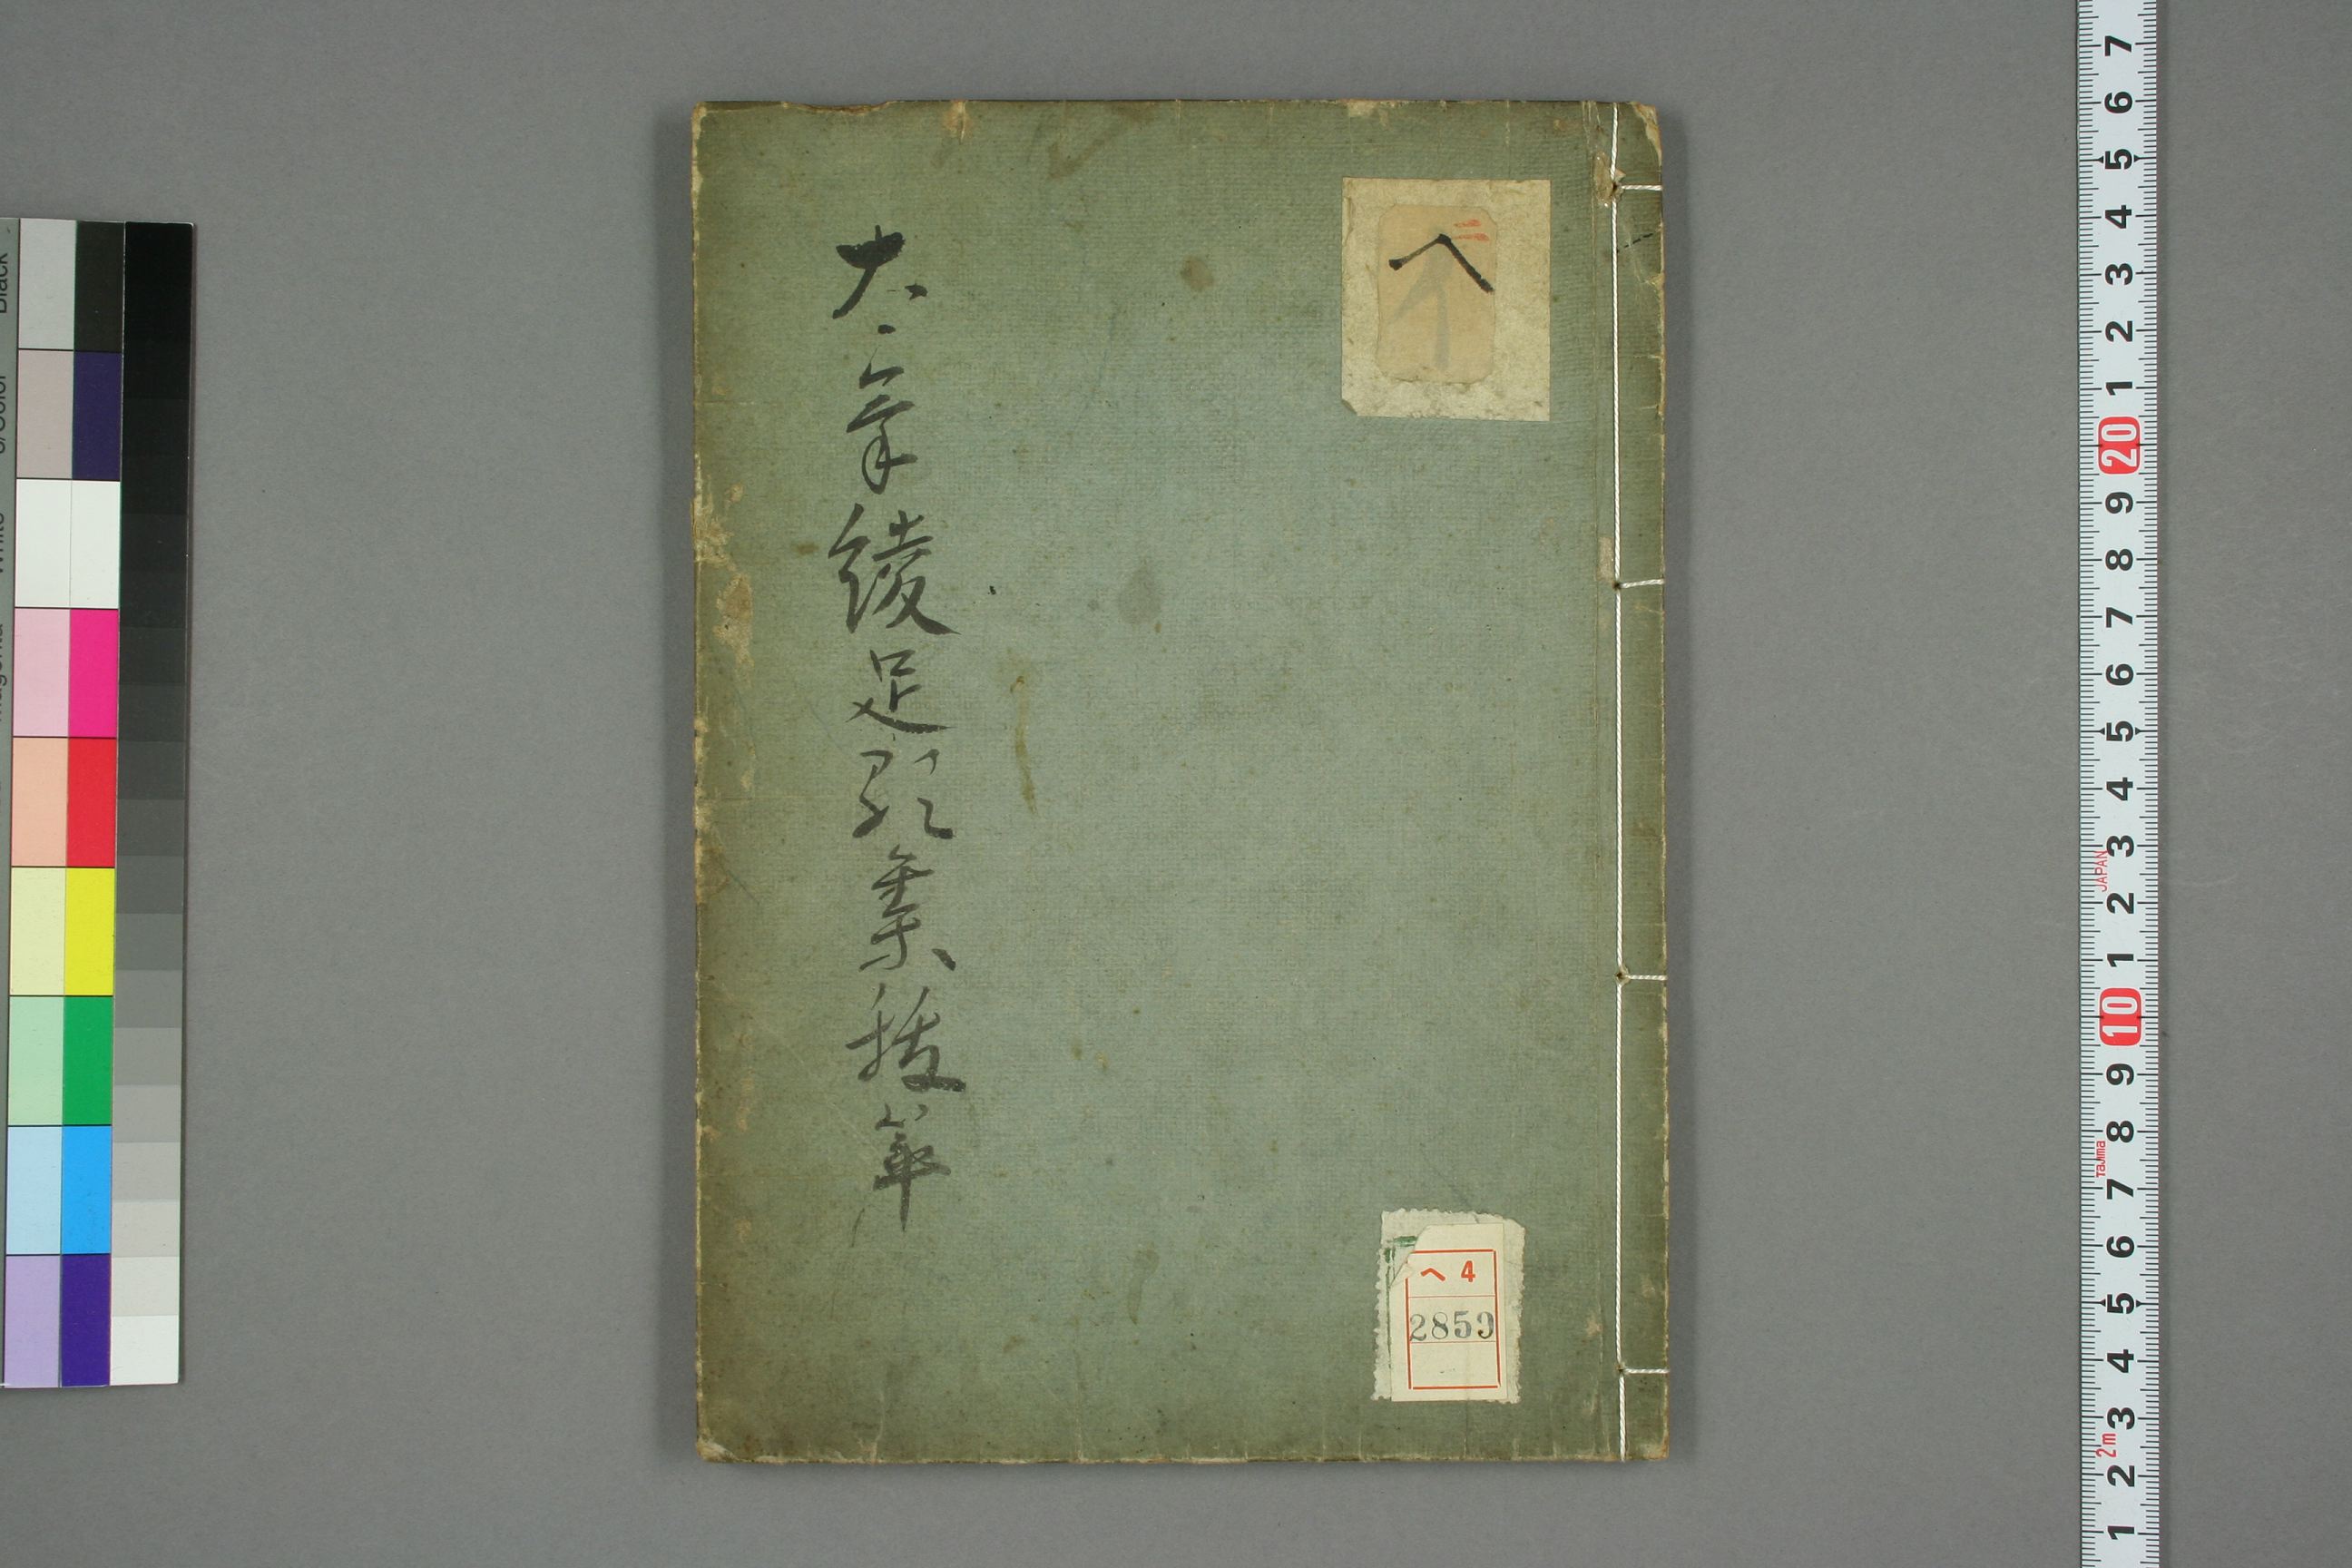 綾足歌集抜萃
へ
へ4
2859
7
6
5
4
3
2
1
20
9
8
7
6
5
4
3
2
1
10
9
8
7
6
5
4
3
2
1
JAPAN
Tajima
2m
Black